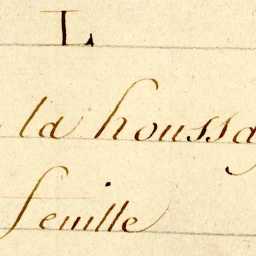 L
la houssa
feuille